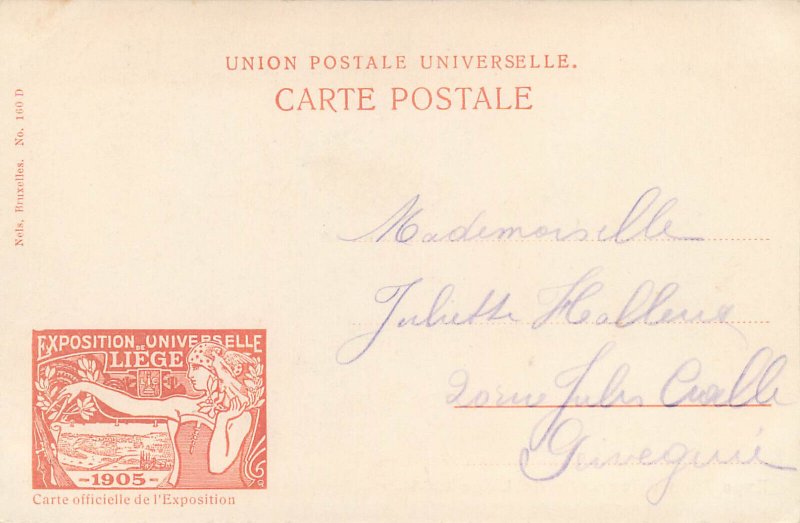 UNION POSTALE UNIVERSELLE.
CARTE POSTALE
Nels, Bruxelles. No. 160 D
Mademoiselle
Juliette Halleux
20 rue Jules Cralle
Grivegnée
EXPOSITION DE UNIVERSELLE
LIÈGE
-1905-
Carte officielle de l'Exposition